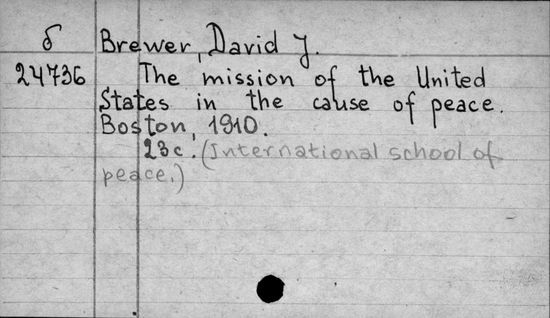 δ Brewer, David J.
24736 The mission of the United
States in the cause of peace.
Boston, 1910.
23c. (International school of
peace.)